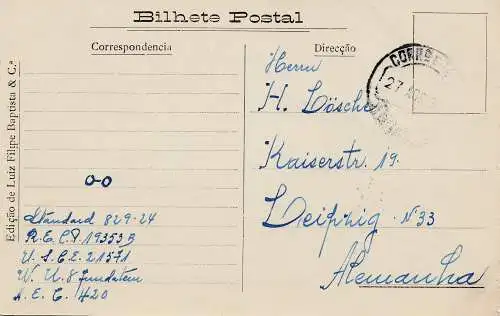 Bilhete Postal
Correspondencia
Direcção
Edição de Luiz Filipe Baptista & C.ª
o-o
Standard 829-24
R.E.C.P. 19353 B
U.S.C.E. 21571
W. U. 8
A.E.C. 420
CORREI
27 AGO
Herrn
H. Lösche
Kaiserstr. 19.
Leipzig N 33
Alemanha